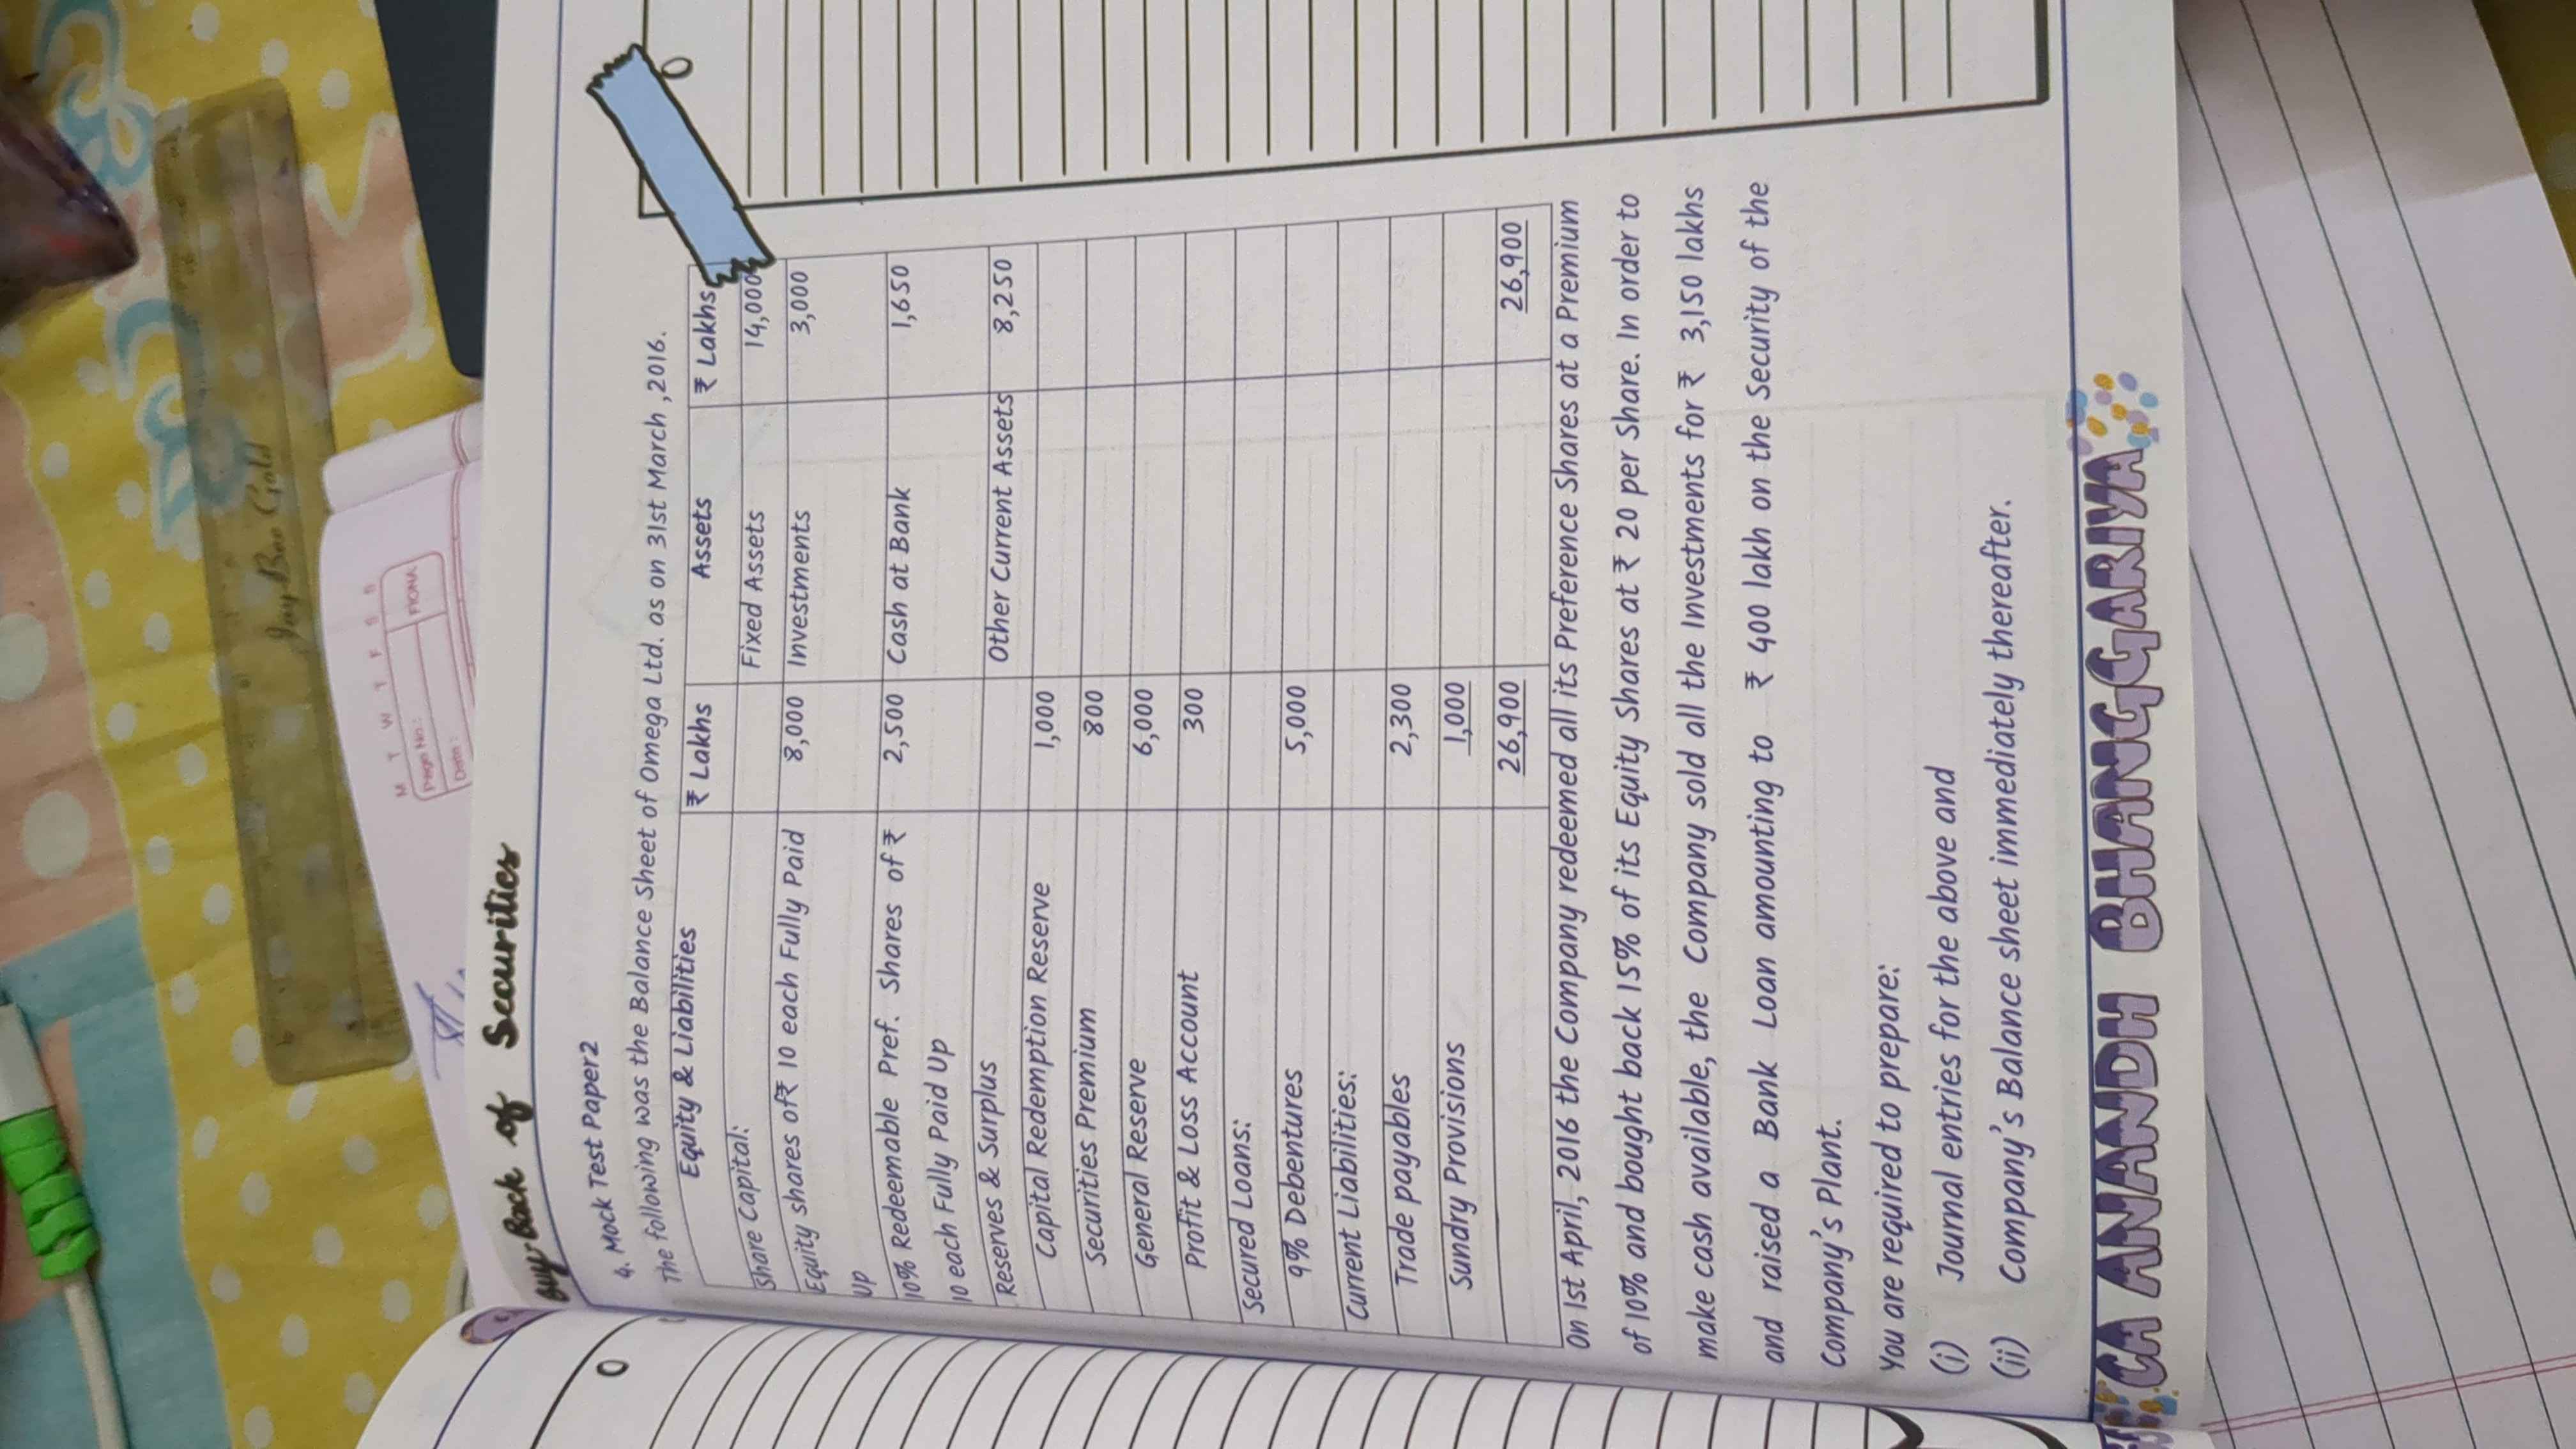 Buy Back of Securities
4. Mock Test Paper2
The following was the Balance Sheet of Omega Ltd. as on 31st March ,2016.
Equity & Liabilities ₹ Lakhs Assets ₹ Lakhs
Share Capital: Fixed Assets 14,000
Equity shares of₹ 10 each Fully Paid 8,000 Investments 3,000
Up
10% Redeemable Pref. Shares of ₹ 2,500 Cash at Bank 1,650
10 each Fully Paid Up
Reserves & Surplus Other Current Assets 8,250
Capital Redemption Reserve 1,000
Securities Premium 800
General Reserve 6,000
Profit & Loss Account 300
Secured Loans:
9% Debentures 5,000
Current Liabilities:
Trade payables 2,300
Sundry Provisions 1,000
26,900 26,900
On 1st April, 2016 the Company redeemed all its Preference Shares at a Premium
of 10% and bought back 15% of its Equity Shares at ₹ 20 per Share. In order to
make cash available, the Company sold all the Investments for ₹ 3,150 lakhs
and raised a Bank Loan amounting to ₹ 400 lakh on the Security of the
Company's Plant.
You are required to prepare:
(i) Journal entries for the above and
(ii) Company's Balance sheet immediately thereafter.
CA ANANDH BHANGGARIYA
M T W T F S S
Page No.:
Date: